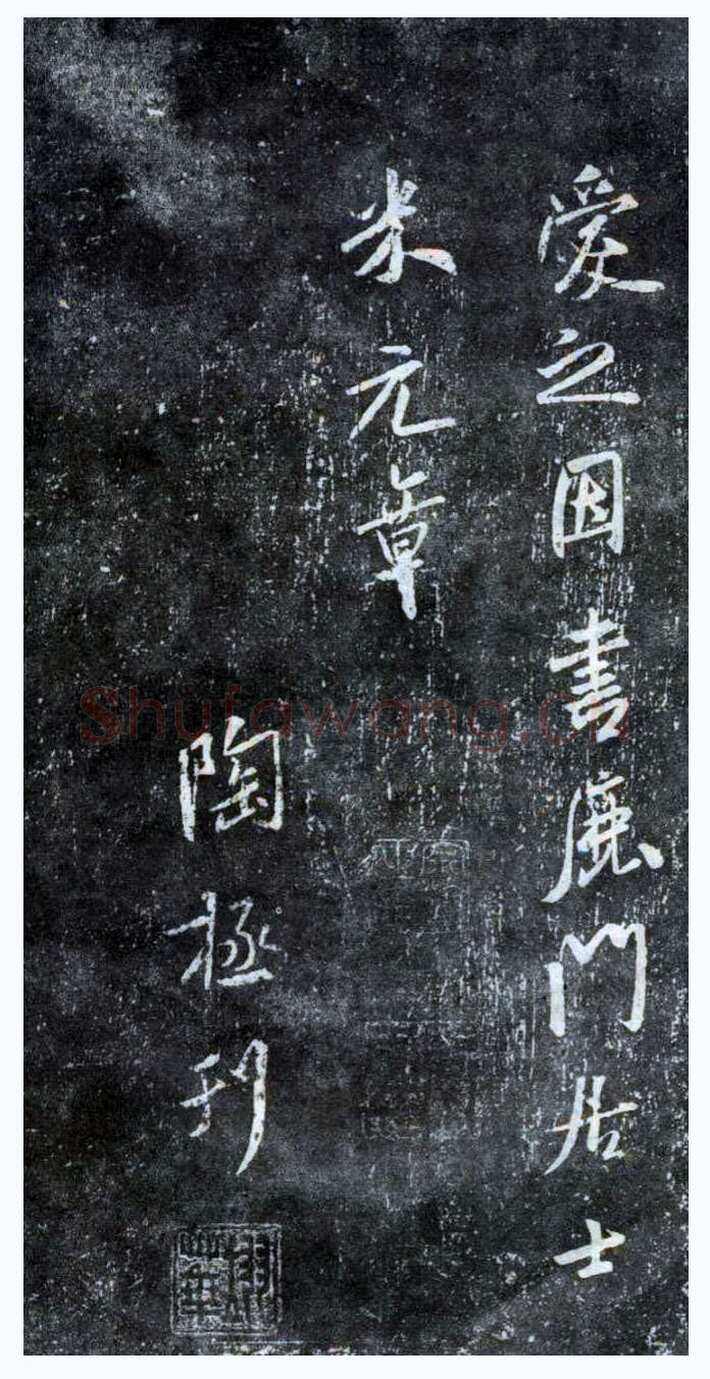 愛之因書鹿門居士
米元章
陶極刊
Shufawang.cn